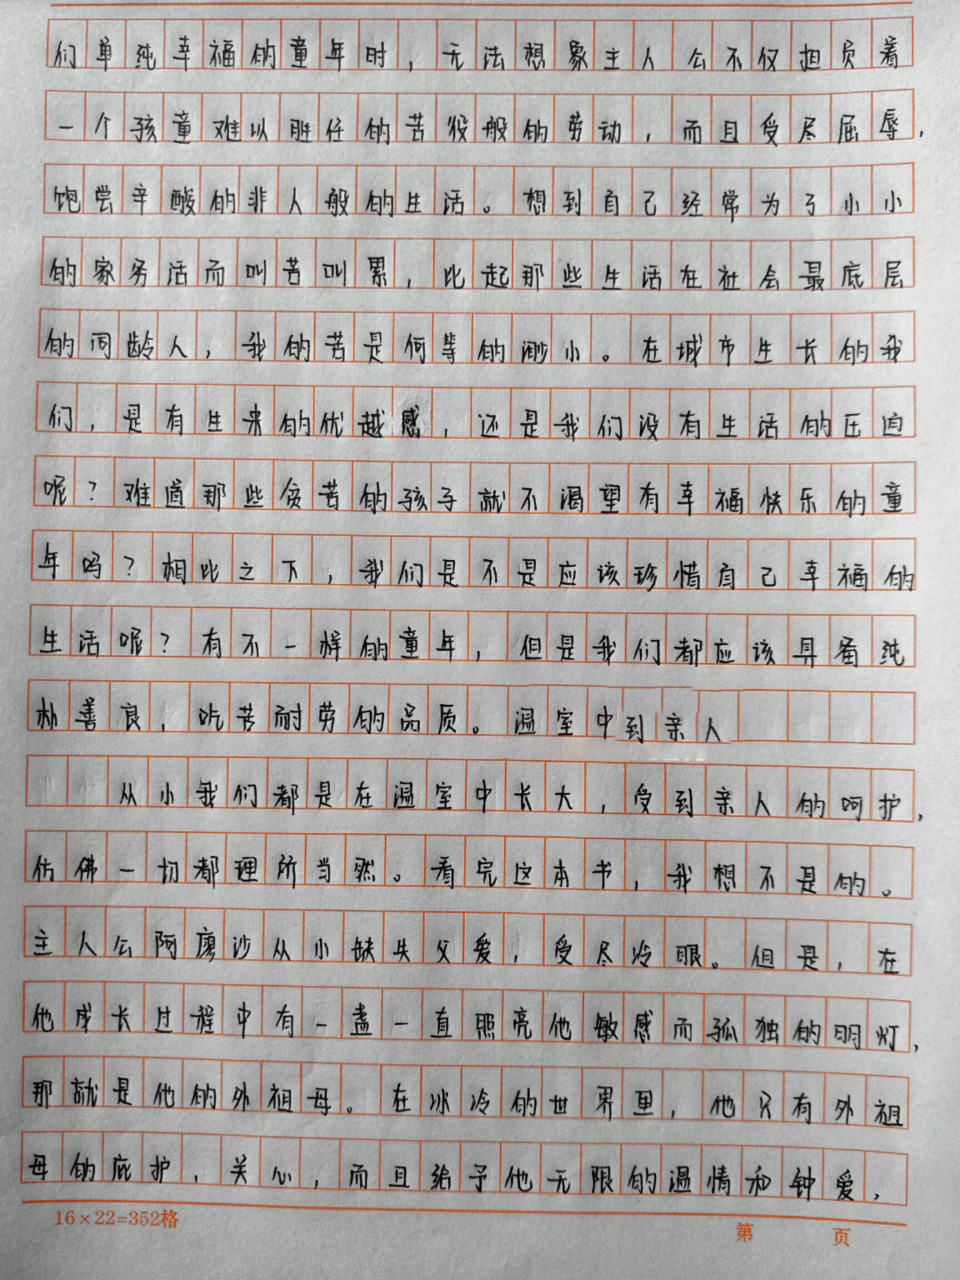 们单纯幸福的童年时，无法想象主人公不仅担负着
一个孩童难以胜任的苦役般的劳动，而且受尽屈辱，
饱尝辛酸的非人般的生活。想到自己经常为了小小
的家务活而叫苦叫累，比起那些生活在社会最底层
的同龄人，我的苦是何等的渺小。在城市生长的我
们，是有生来的优越感，还是我们没有生活的压迫
呢？难道那些贫苦的孩子就不渴望有幸福快乐的童
年吗？相比之下，我们是不是应该珍惜自己幸福的
生活呢？有不一样的童年，但是我们都应该具备纯
朴善良，吃苦耐劳的品质。温室中到亲人
从小我们都是在温室中长大，受到亲人的呵护，
仿佛一切都理所当然。看完这本书，我想不是的。
主人公阿廖沙从小缺失父爱，受尽冷眼。但是，在
他成长过程中有一盏一直照亮他敏感而孤独的明灯，
那就是他的外祖母。在冰冷的世界里，他只有外祖
母的庇护、关心，而且给予他无限的温情和钟爱，
16×22=352格
第 页